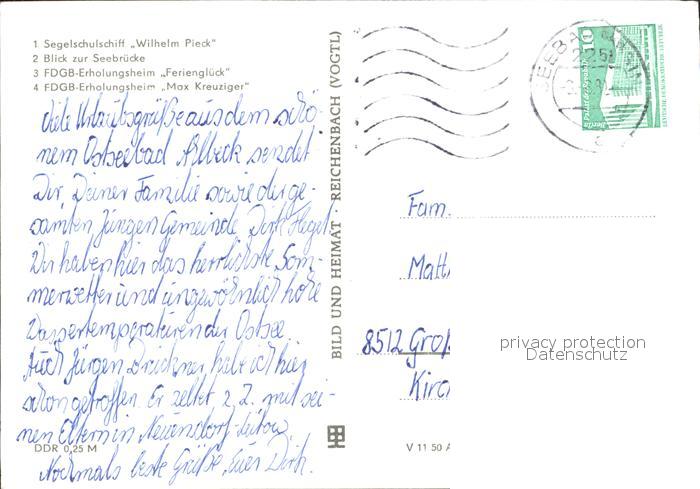 1 Segelschulschiff „Wilhelm Pieck"
2 Blick zur Seebrücke
3 FDGB-Erholungsheim „Ferienglück"
4 FDGB-Erholungsheim „Max Kreuziger"
Viele Urlaubsgrüße aus dem schö-
nem Ostseebad Ahlbeck sendet
Dir, Deiner Familie sowie der ge-
samten Jungen Gemeinde, Dirk
Wir haben hier das herrlichste Som-
merwetter und ungewöhnlich hohe
Wassertemperaturen der Ostsee.
Auch Jürgen habe ich hier
schon getroffen. Er zeltet z. Z. mit sei-
nen Eltern in Neuendorf
Nochmals beste Grüße, Euer Dirk.
DDR 0,25 M
BILD UND HEIMAT · REICHENBACH (VOGTL)
V 11 50
SEEBA
10
Fam.
Matt
8512 Groß
Kirc
privacy protection
Datenschutz